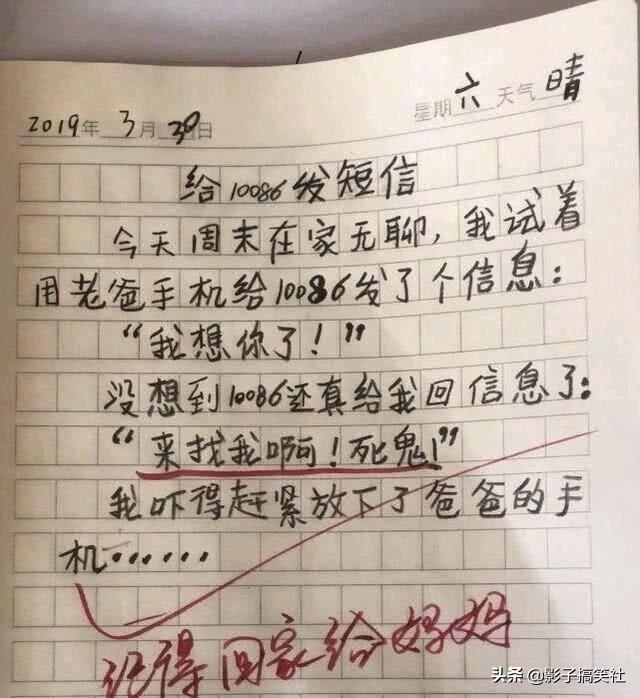 2019年 3月 30日 星期 六 天气 晴
给10086发短信
今天周末在家无聊,我试着
用老爸手机给10086发了个信息:
“我想你了!”
没想到10086还真给我回信息了:
“来找我啊!死鬼!”
我吓得赶紧放下了爸爸的手
机······
记得回家给妈妈
头条@影子搞笑社